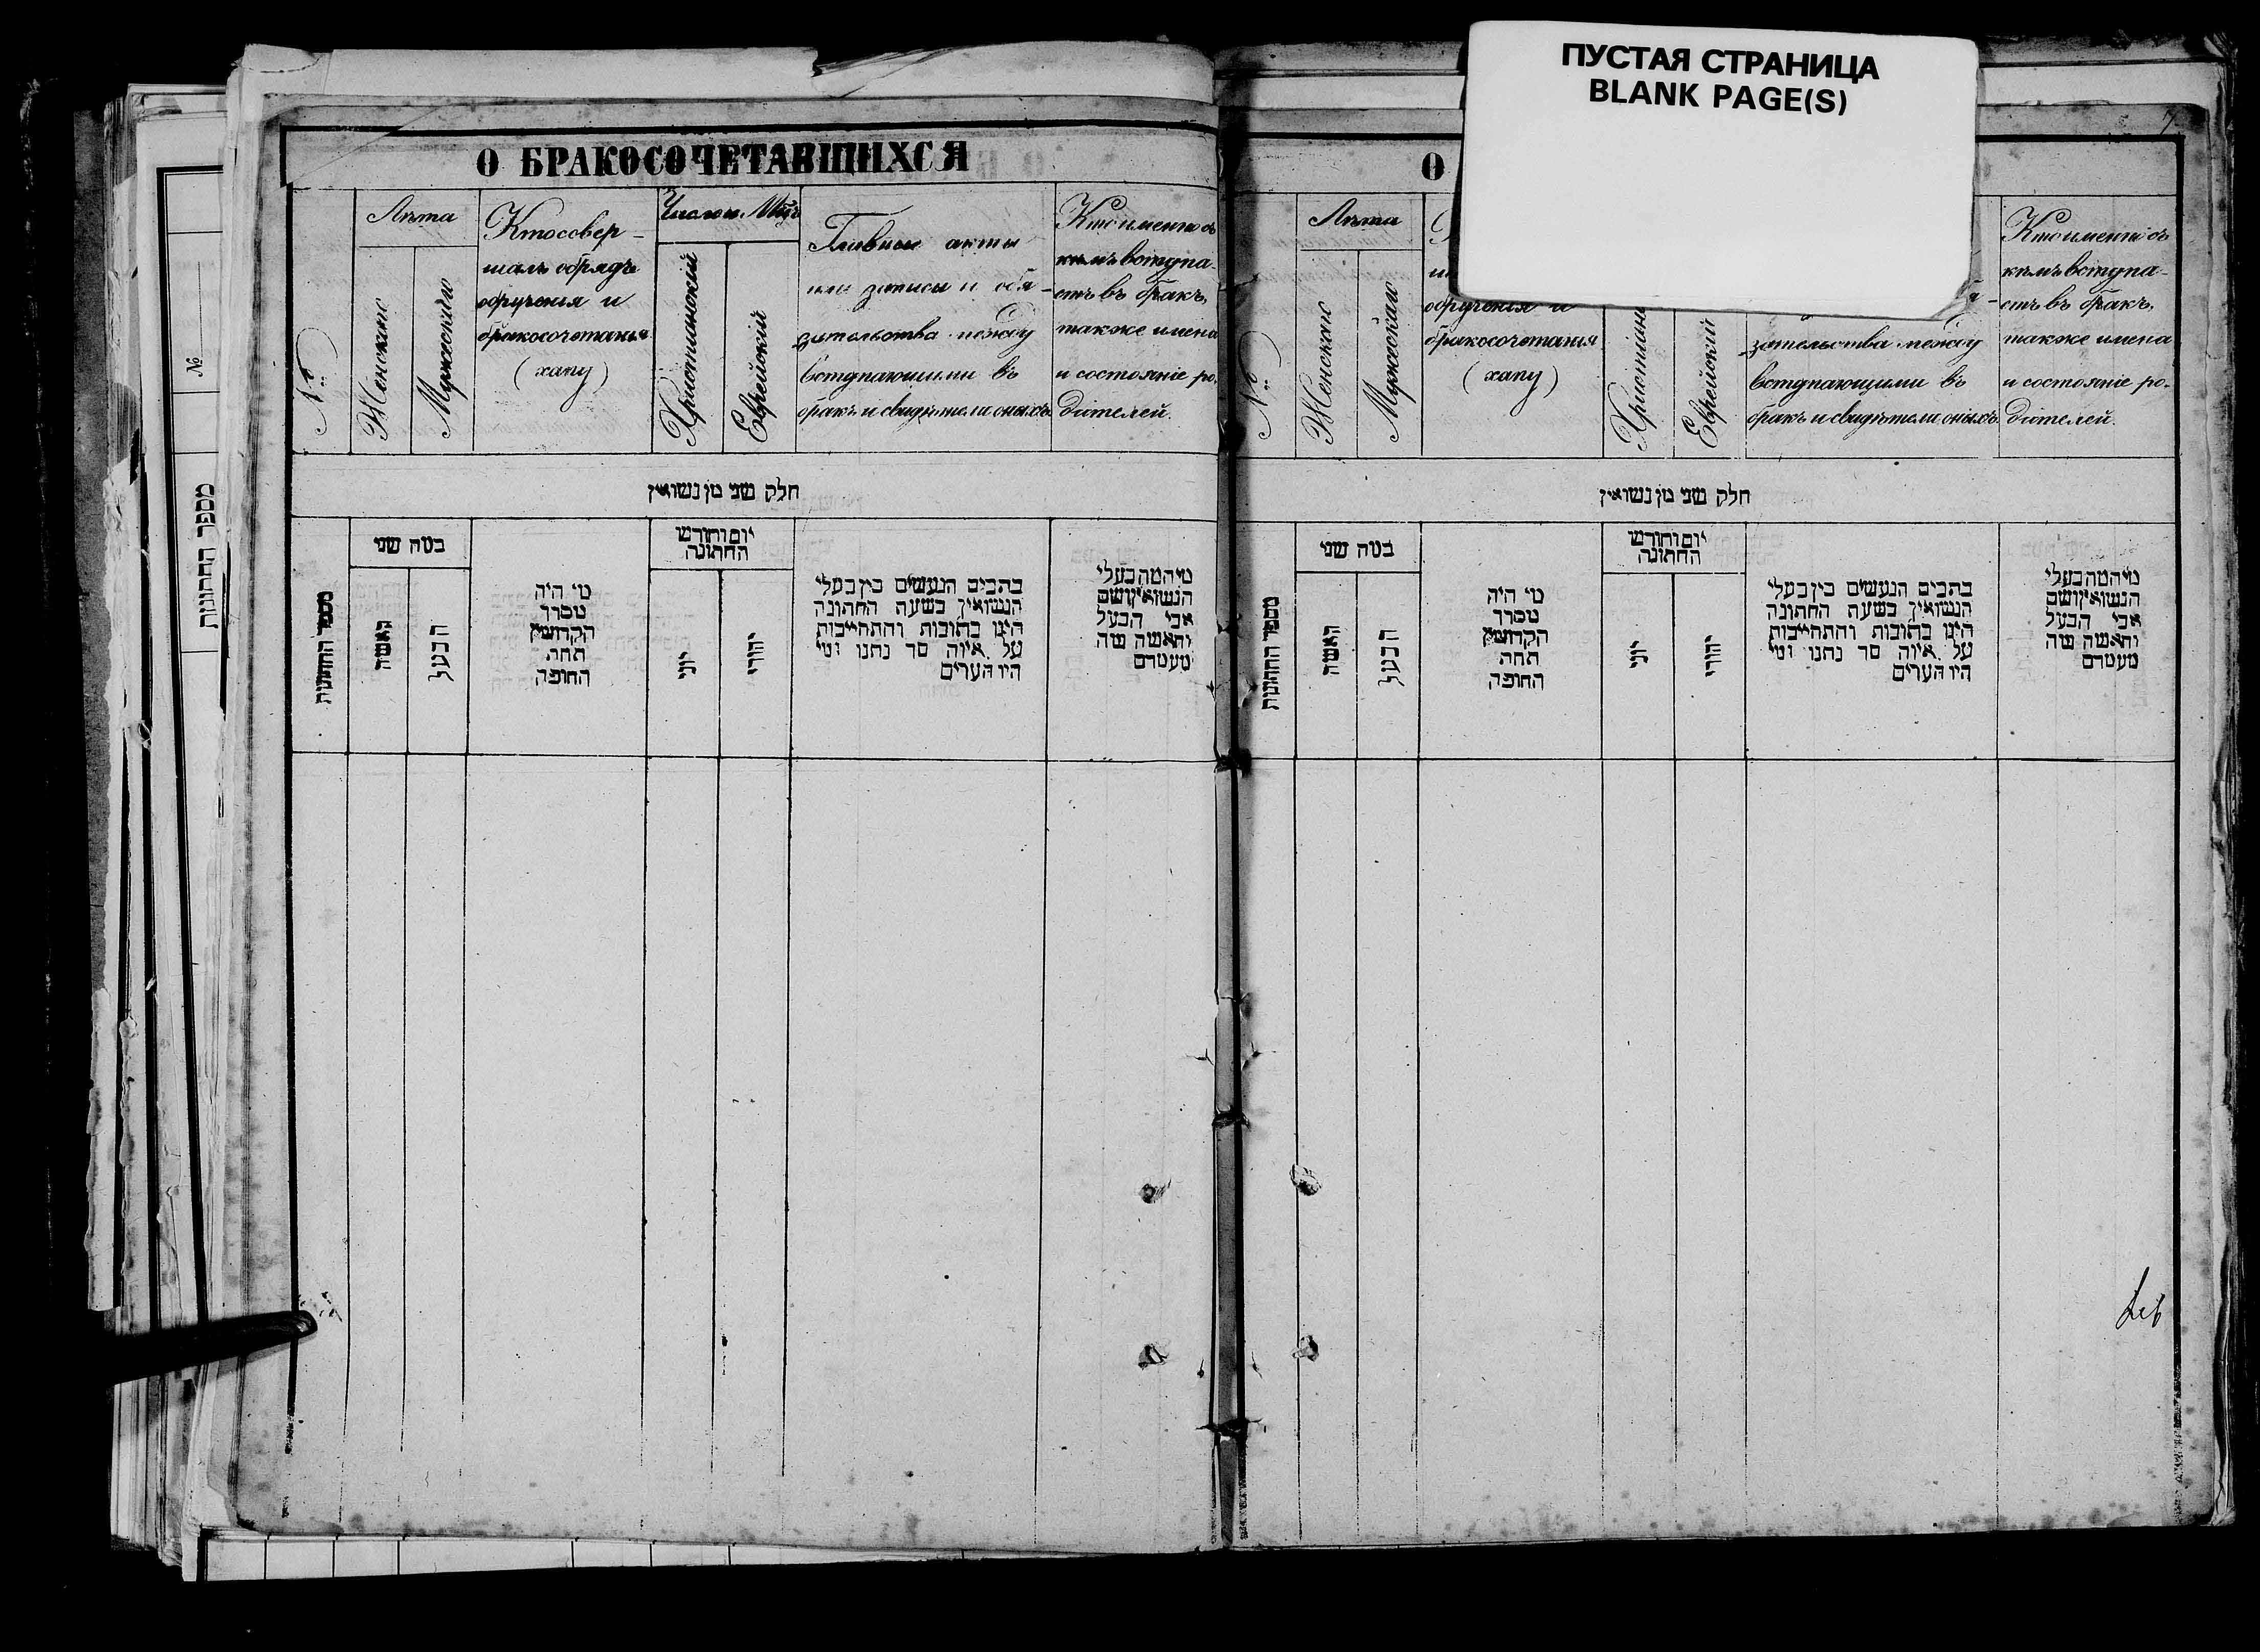 ПУСТАЯ СТРАНИЦА
BLANK PAGE(S)
№
מספר החתונות
О БРАКОСОЧЕТАВШИХСЯ
№
Лѣта
Женское
Мужеское
Кто совер-
шалъ обрядъ
обрученія и
бракосочетанія
(хупу)
Число и Мѣц
Христианский
Еврейский
Главные акты
или записи и обя-
зательства между
вступающими въ
бракъ и свидѣтели оныхъ
Кто именно съ
кемъ вступа-
етъ въ бракъ,
также имена
и состояніе ро-
дителей.
חלק שני מן נשואין
מספר החתונות
כמה שני
האשה
הבעל
מי היה
מסדר
הקדושין
תחת
החופה
יום וחודש
החתונה
יוני
יהודי
כתבים הנעשים בין בעלי
הנשואין בשעת החתונה
היינו כתובות והתחייבות
על איזה סך נתנו ומי
היו העדים
מי המה בעלי
הנשואין ושם
אבי הבעל
והאשה
מעמדם
7
О
№
Лѣта
Женское
Мужеское
обрученія и
бракосочетанія
(хупу)
Еврейский
зательства между
вступающими въ
бракъ и свидѣтели оныхъ
Кто именно съ
кемъ вступа-
етъ въ бракъ,
также имена
и состояніе ро-
дителей.
חלק שני מן נשואין
מספר החתונות
כמה שני
האשה
הבעל
מי היה
מסדר
הקדושין
תחת
החופה
יום וחודש
החתונה
יוני
יהודי
כתבים הנעשים בין בעלי
הנשואין בשעת החתונה
היינו כתובות והתחייבות
על איזה סך נתנו ומי
היו העדים
מי המה בעלי
הנשואין ושם
אבי הבעל
והאשה
מעמדם